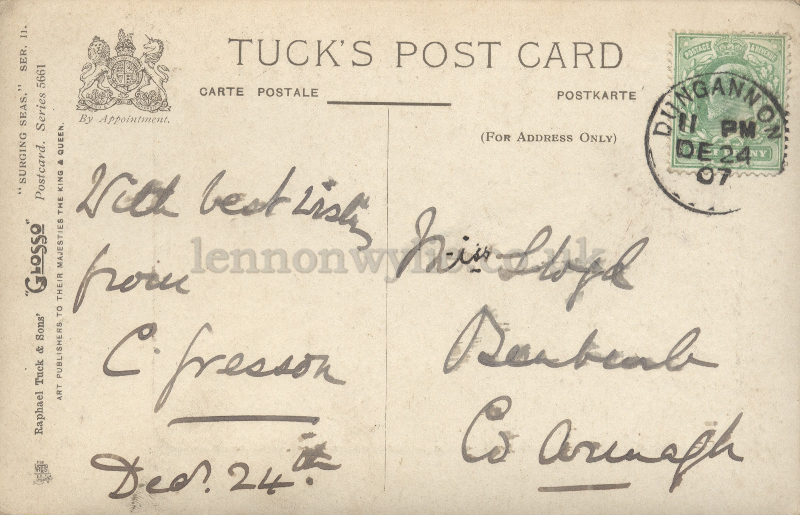 TUCK'S POST CARD
CARTE POSTALE
POSTKARTE
(FOR ADDRESS ONLY)
By Appointment.
"SURGING SEAS." SER. 11.
Raphael Tuck & Sons' "GLOSSO" Postcard. Series 5661
ART PUBLISHERS TO THEIR MAJESTIES THE KING & QUEEN.
POSTAGE & REVENUE
DUNGANNON
11 PM
DE 24
07
With best wishes
from
C. Gresson
Dec. 24th
Miss Lloyd
Benburb
Co Armagh
lennonwylie.co.uk